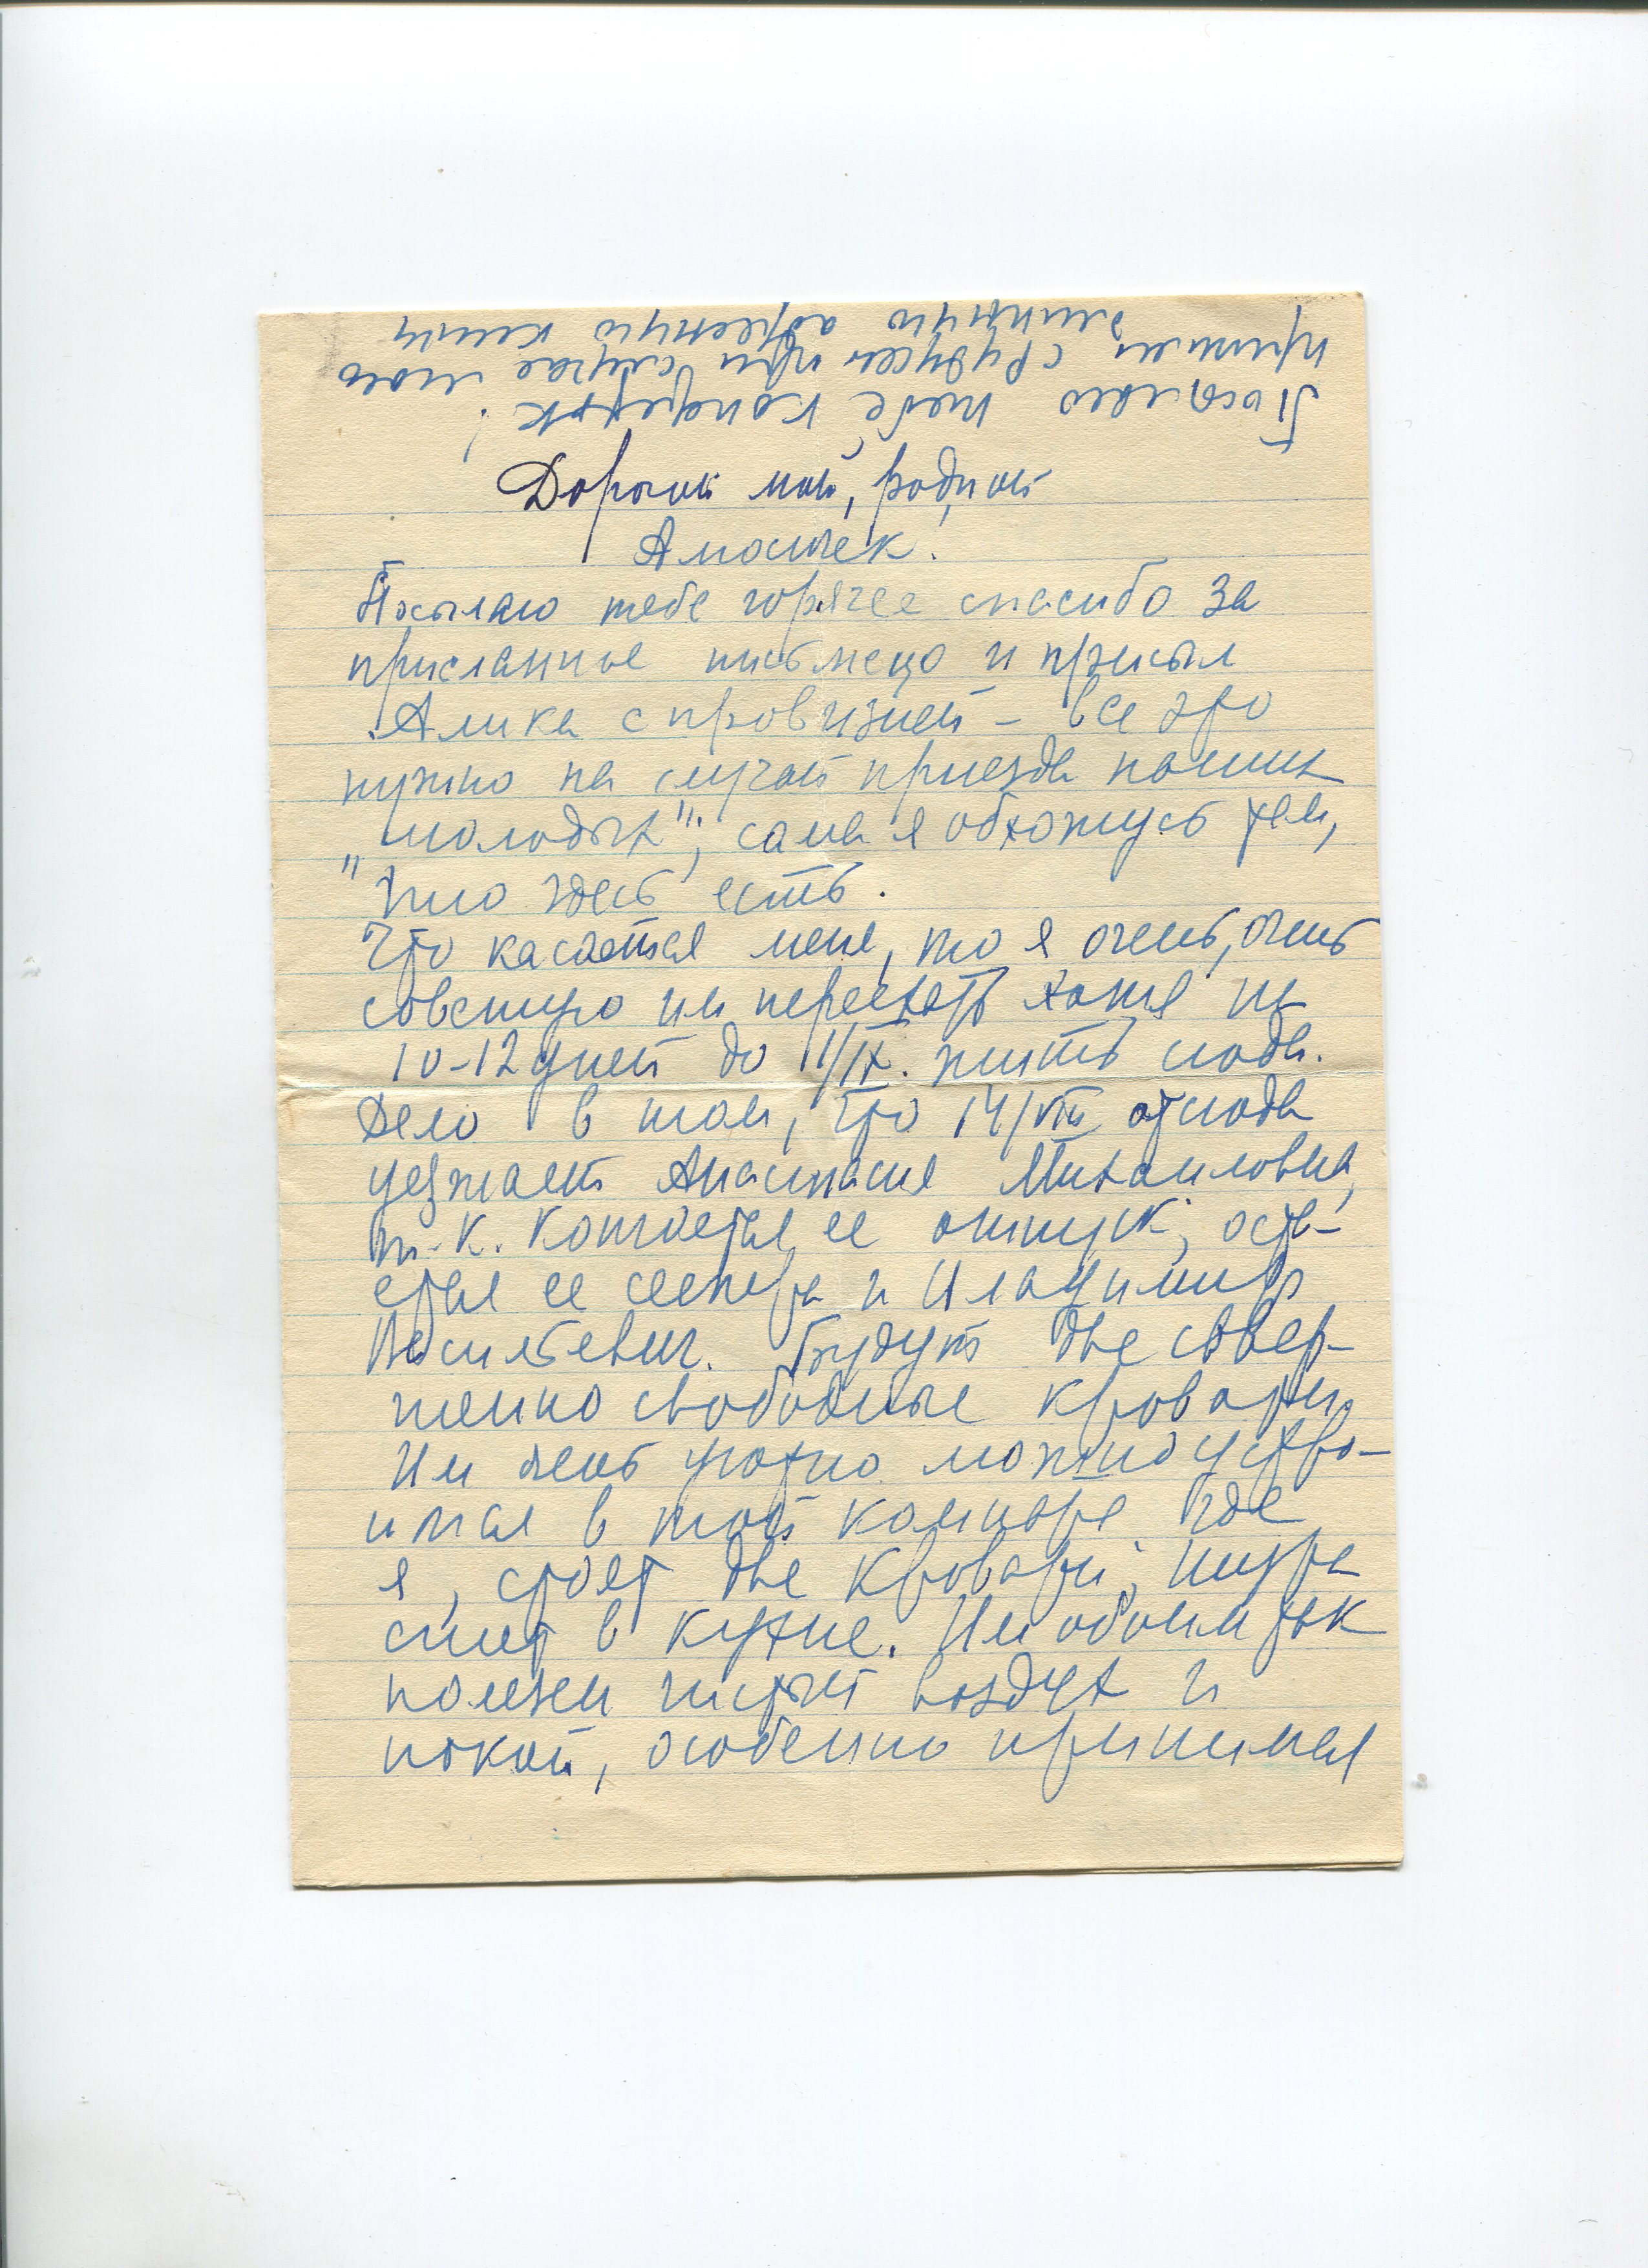 Посылаю тебе конфеток!
пришли с Рудиком при случае мою
длинную адресную книгу
Дорогой мой, родной
Амосичек!
Посылаю тебе горячее спасибо за
присланное письмецо и присыл
Алика с провизией – все это
нужно на случай приезда наших
„молодых"; сама я обхожусь тем,
что здесь есть.
Что касается меня, то я очень, очень
советую им переехать хотя на
10-12 дней до 1/IX. жить сюда.
Дело в том, что 14/VIII отсюда
уезжает Анастасия Михаиловна,
т.к. кончается ее отпуск, оста-
ется ее сестра и Владимир
Васильевич. Будут две совер-
шенно свободные кровати.
Им очень уютно можно устро-
иться в той комнате где
я, стоят две кровати; Шура
спит в кухне. Им обоим так
полезен чистый воздух и
покой, особенно принимая